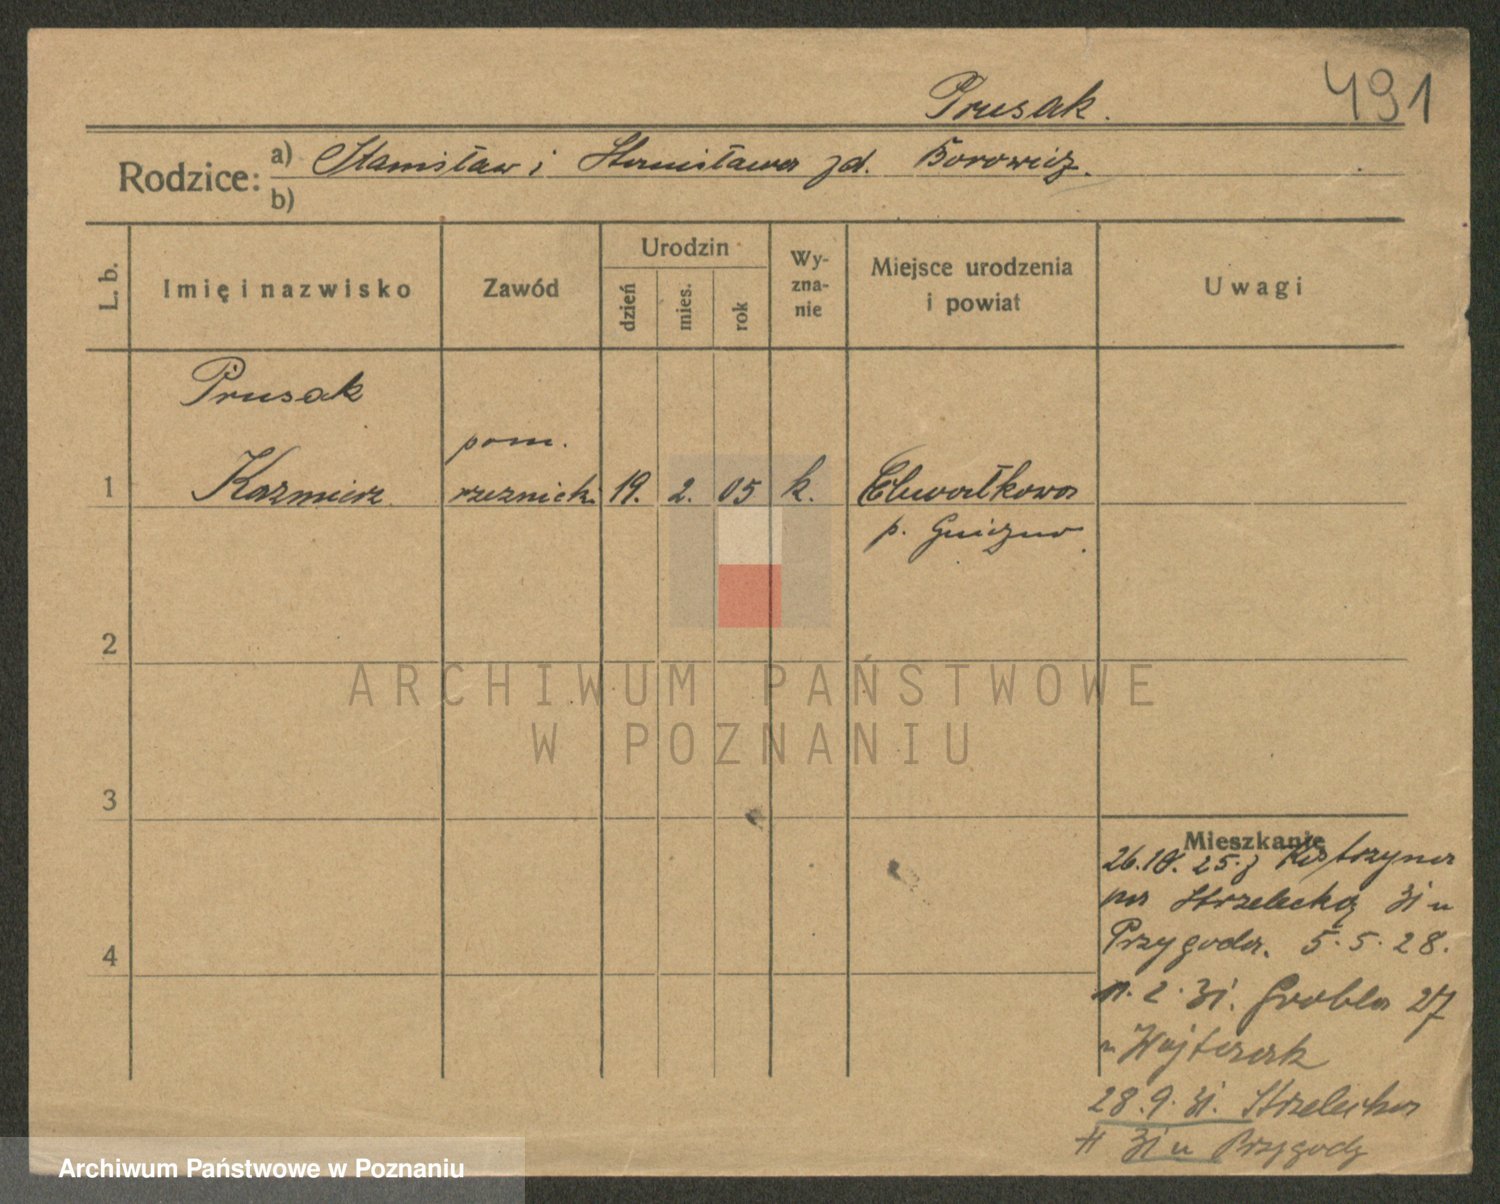 491
Prusak.
Rodzice: a) Stanisław i Stanisława zd. Borowicz.
b)
L. b.
Imię i nazwisko
Zawód
Urodzin
dzień
mies.
rok
Wy-
zna-
nie
Miejsce urodzenia
i powiat
Uwagi
Prusak
pom.
1 Kazmierz rzeznicki 19. 2. 05 k. Chwałkowo
p. Gniezno.
2
3
4
Mieszkanie
26.10.25. z Kostrzyna
na Strzelecką 31 u
Przygoda. 5.5.28.
11.2.31. Grobla 27
u Wojtczak
28.9.31. Strzelecka
31 u Przygody
ARCHIWUM PAŃSTWOWE
W POZNANIU
Archiwum Państwowe w Poznaniu